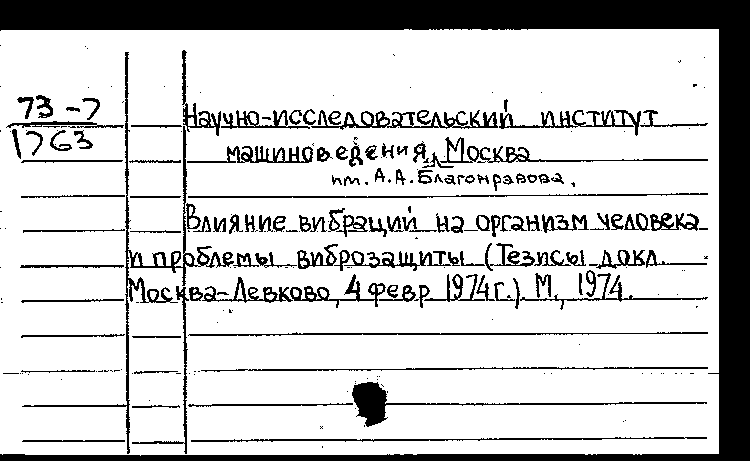 73-7
1763
Научно-исследовательский институт
машиноведения, Москва
им. А.А. Благонравова.
Влияние вибраций на организм человека
и проблемы виброзащиты (Тезисы докл.
Москва-Левково, 4 февр. 1974г.). М., 1974.